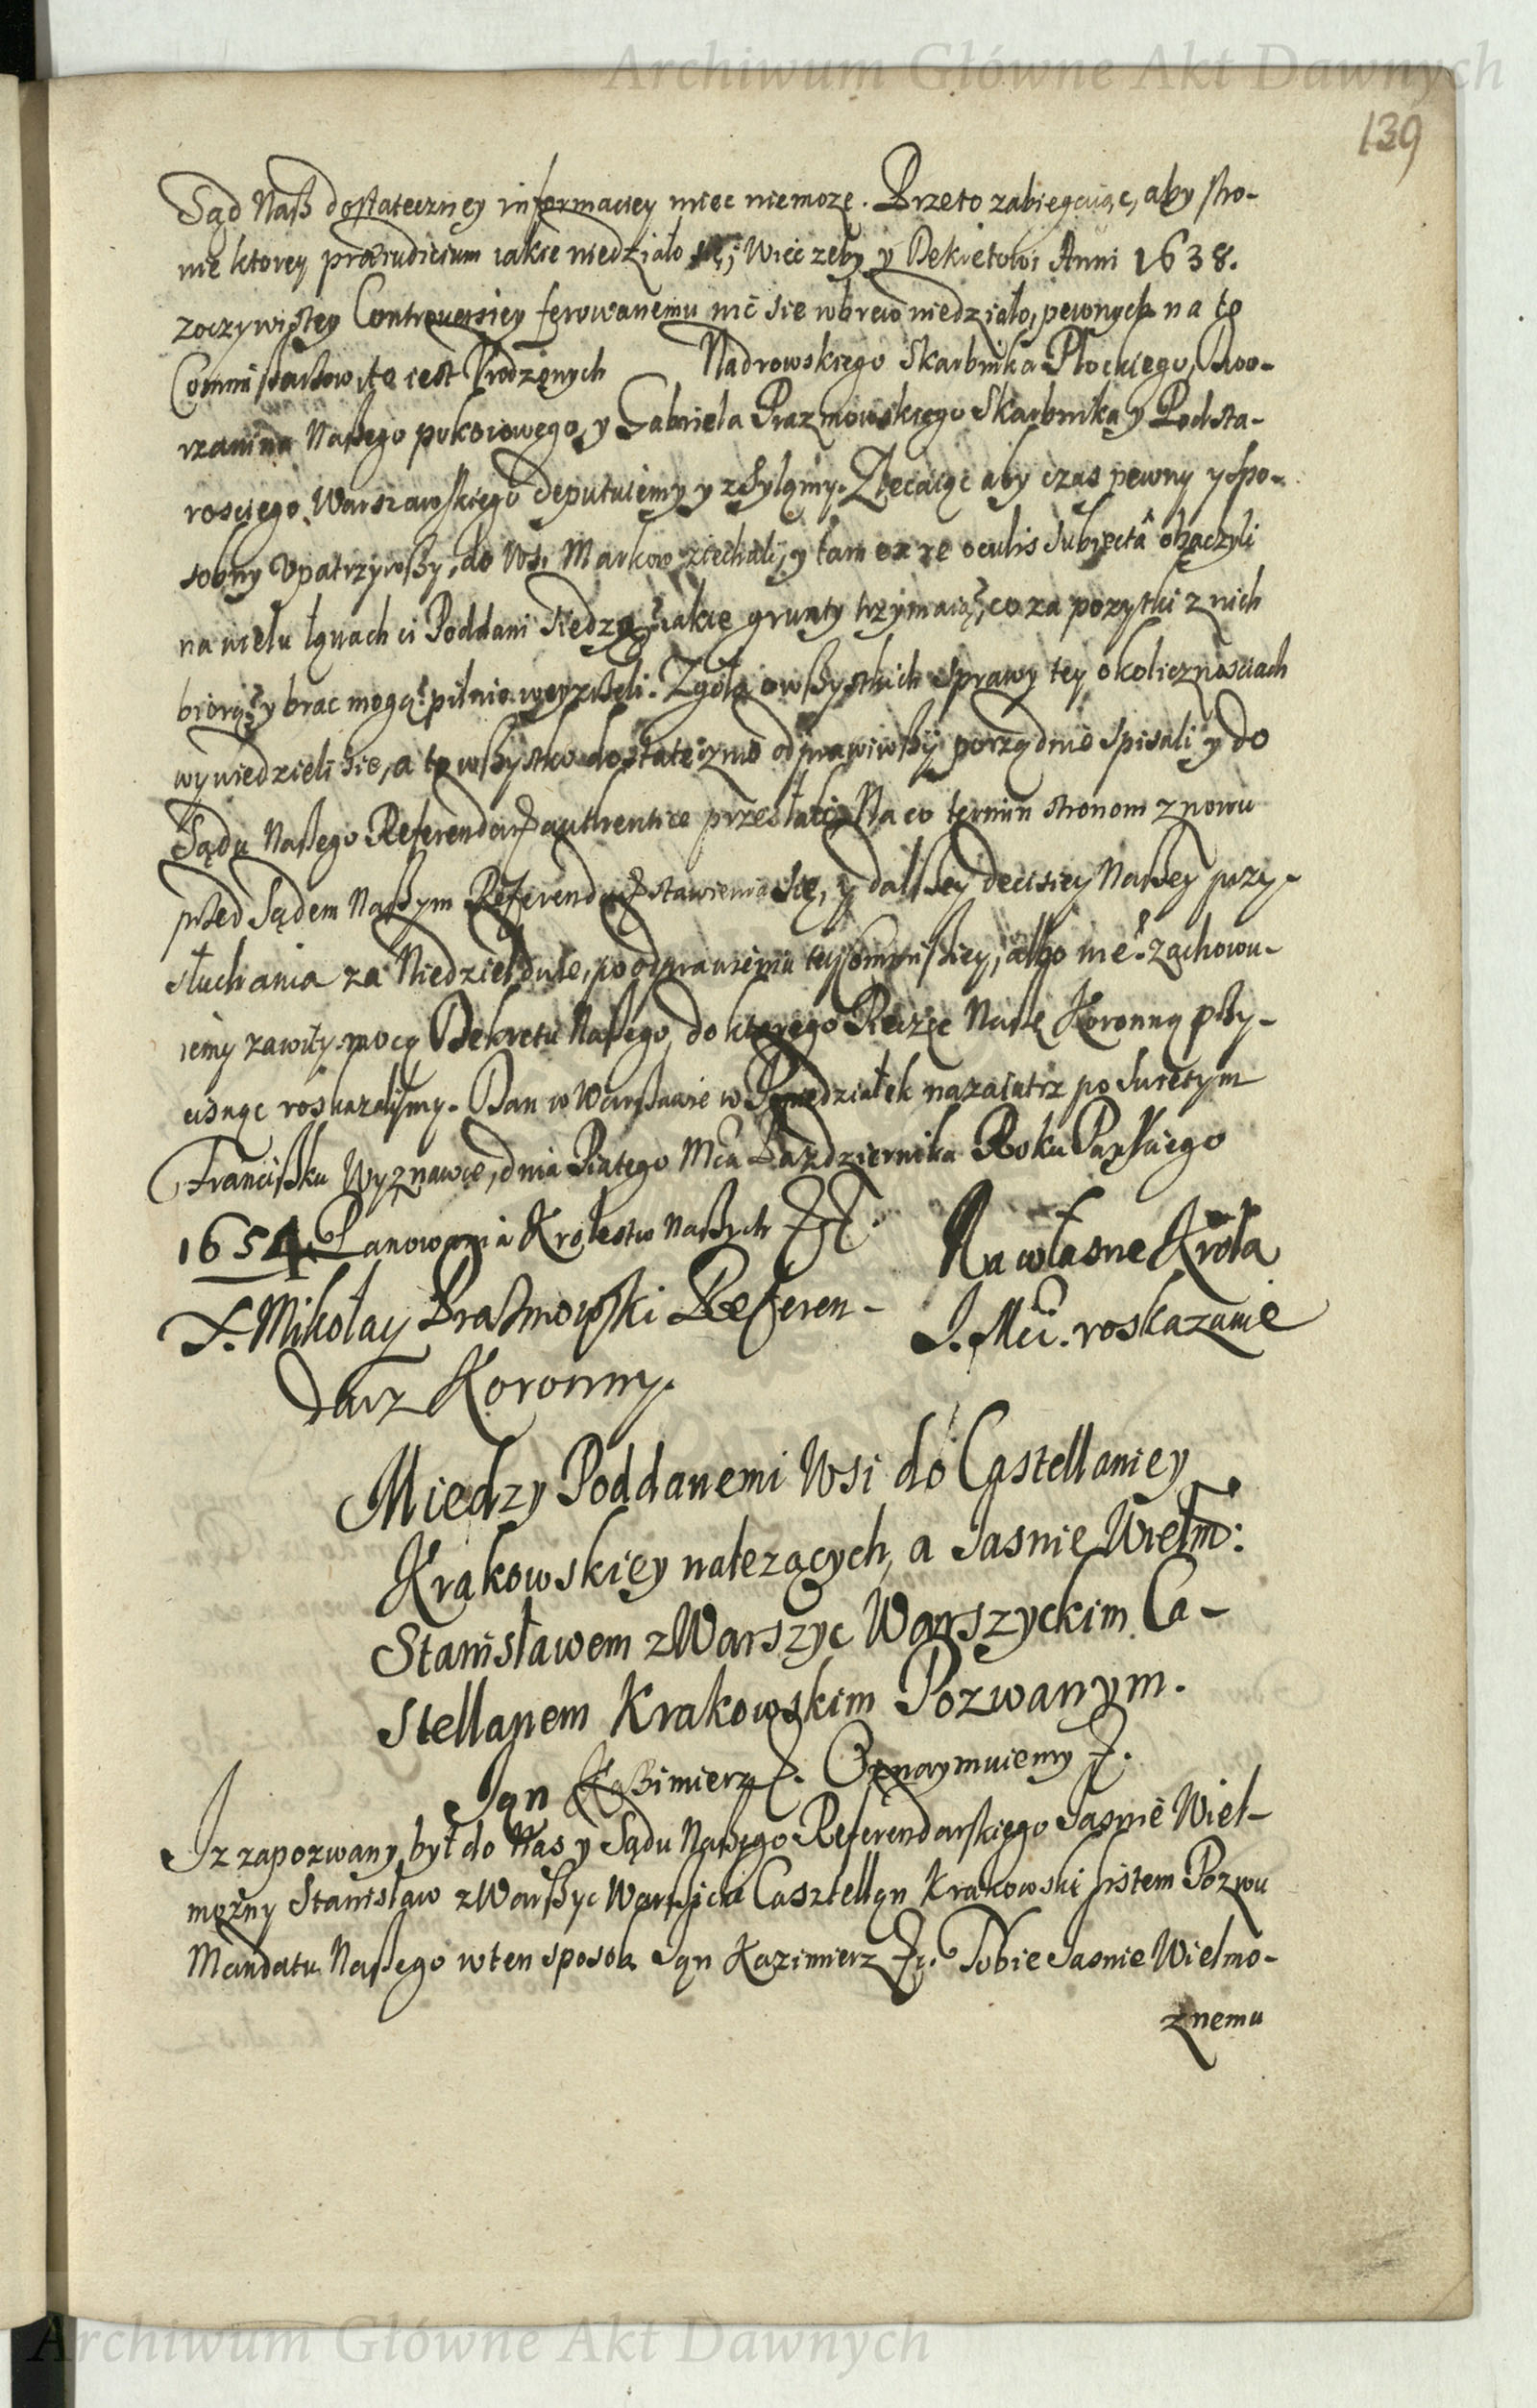 Archiwum Główne Akt Dawnych
139
Sąd Naß dostateczney informaciey miec niemoze. Przeto zabiegaiąc, aby stro-
nie ktorey præiudicium iakie niedziało się; Więc zeby y Dekretowi Anni 1638.
zoczywistey Controuersiey ferowanemu nic sie wbrew niedziało, pewnych na to
Commissarzow, to iest Vrodzonych Nadrowskiego Skarbnika Płockiego, Dwo-
rzanina Naßego pokoiowego, y Gabriela Prazmowskiego Skarbnika y Podsta-
rosciego Warszawskiego deputuiemy y zsyłamy. Zlecaiąc aby czas pewny y spo-
sobny vpatrzywßy, do Wsi Markow ziechali, y tam ex re oculis subiecta obaczyli
na wielu łanach ci Poddani siedzą? iakie grunty trzymaią? co za pozytki z nich
biorą? y brac mogą? pilnie weyrzeli. Zgoła o wßystkich sprawy tey okolicznosciach
wywiedzieli sie, a to wßystko dostatecznie odprawiwßy porządnie spisali y do
Sądu Naßego Referendar: authentice przesłali. Na co termin stronom znowu
przed Sądem Naßym Referendar: stawienia się, y dalßey decisiey Naßey przy-
słuchania za Niedziel dwie, po odprawieniu tey Commißiey, albo nie? zachowu-
iemy zawity. mocą Dekretu Naßego, do ktorego Pieczęc Naßę Koronną przy-
cisnąc roskazalismy. Dan w Warßawie w Poniedziałek nazaiutrz po Swietym
Francißku Wyznawcę, dnia Piątego Mca Pazdziernika Roku Panskiego
1654. Panowania Krolestw Naßych etc.
Na własne Krola
X. Mikołay Praßmowski Referen-
J. Mci. roskazanie
darz Koronny.
Miedzy Poddanemi Wsi do Castellaniey
Krakowskiey nalezących, a Jasnie Wielm:
Stanisławem z Warszyc Warszyckim Ca-
stellanem Krakowskim Pozwanym.
Jan Kaßimierz etc. Oznaymuiemy etc.
Iz zapozwany był do Nas y Sądu Naßego Referendarskiego Jasnie Wiel-
mozny Stanisław z Warßyc Warßicki Casztellan Krakowski listem Pozwu
Mandatu Naßego w ten sposob. Jan Kazimierz etc. Tobie Jasnie Wielmo-
znemu
Archiwum Główne Akt Dawnych